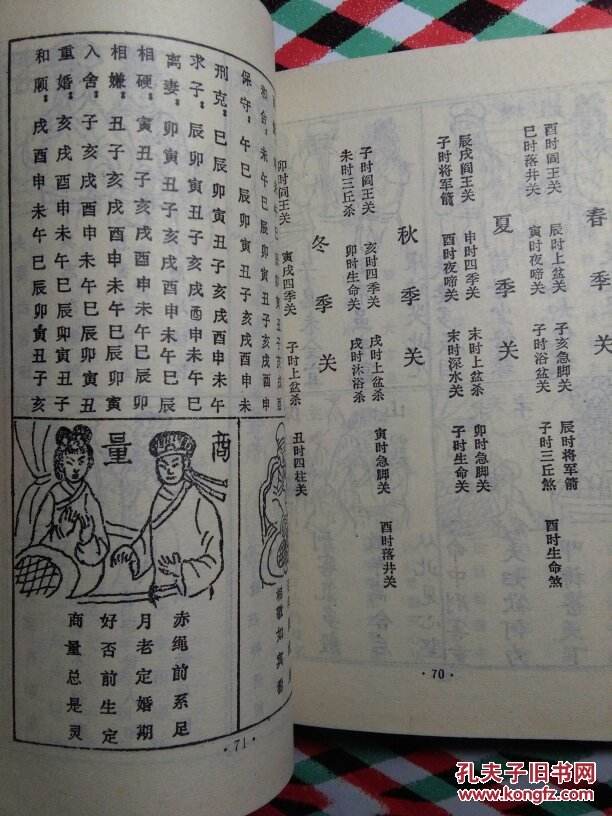 春季关
酉时阎王关 辰时上盆关 子亥急脚关 辰时将军箭
巳时落井关 寅时夜啼关 子时浴盆关 子时三丘煞 酉时生命煞
夏季关
辰戌阎王关 申时四季关 末时上盆关 卯时急脚关
子时将军箭 酉时夜啼关 末时深水关 子时生命关
秋季关
子时阎王关 亥时四季关 戌时上盆杀 寅时急脚关 酉时落井关
朱时三丘杀 卯时生命关 戌时沐浴杀
冬季关
卯时阎王关 寅戌四季关 子时上盆杀 丑时四柱关
·70·
和合：未午巳辰卯寅丑子亥戌酉申
保守：午巳辰卯寅丑子亥戌酉申未
刑克：巳辰卯寅丑子亥戌酉申未午
求子：辰卯寅丑子亥戌酉申未午巳
离妻：卯寅丑子亥戌酉申未午巳辰
相硬：寅丑子亥戌酉申未午巳辰卯
相嫌：丑子亥戌酉申未午巳辰卯寅
入舍：子亥戌酉申未午巳辰卯寅丑
重婚：亥戌酉申未午巳辰卯寅丑子
和顺：戌酉申未午巳辰卯寅丑子亥
商量
赤绳前系足
月老定婚期
好否前生定
商量总是灵
·71·
孔夫子旧书网
www.kongfz.com